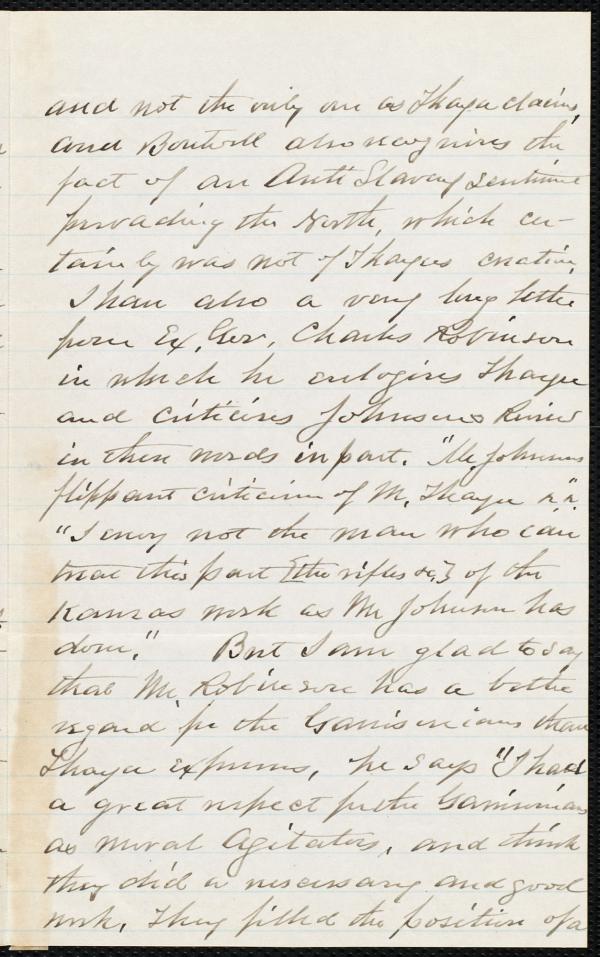 and not the only one as Thayer claims,
and Boutwell also recognises the
fact of an Anti Slavery Sentiment
pervading the North, which cer-
tainly was not of Thayers creation,
I have also a very long letter
from Ex. Gov. Charles Robinson
in which he eulogises Thayer
and criticises Johnsons Review
in these words in part. "Mr. Johnsons
flippant criticism of Mr. Thayer
"I envy not the man who can
treat this part [the rifles &c.] of the
Kansas work as Mr Johnson has
done." But I am glad to say
that Mr. Robinson has a better
regard for the Garrisonians than
Thayer expresses, he says "I had
a great respect for the Garrisonians
as moral Agitators, and think
they did a necessary and good
work, They filled the position of a